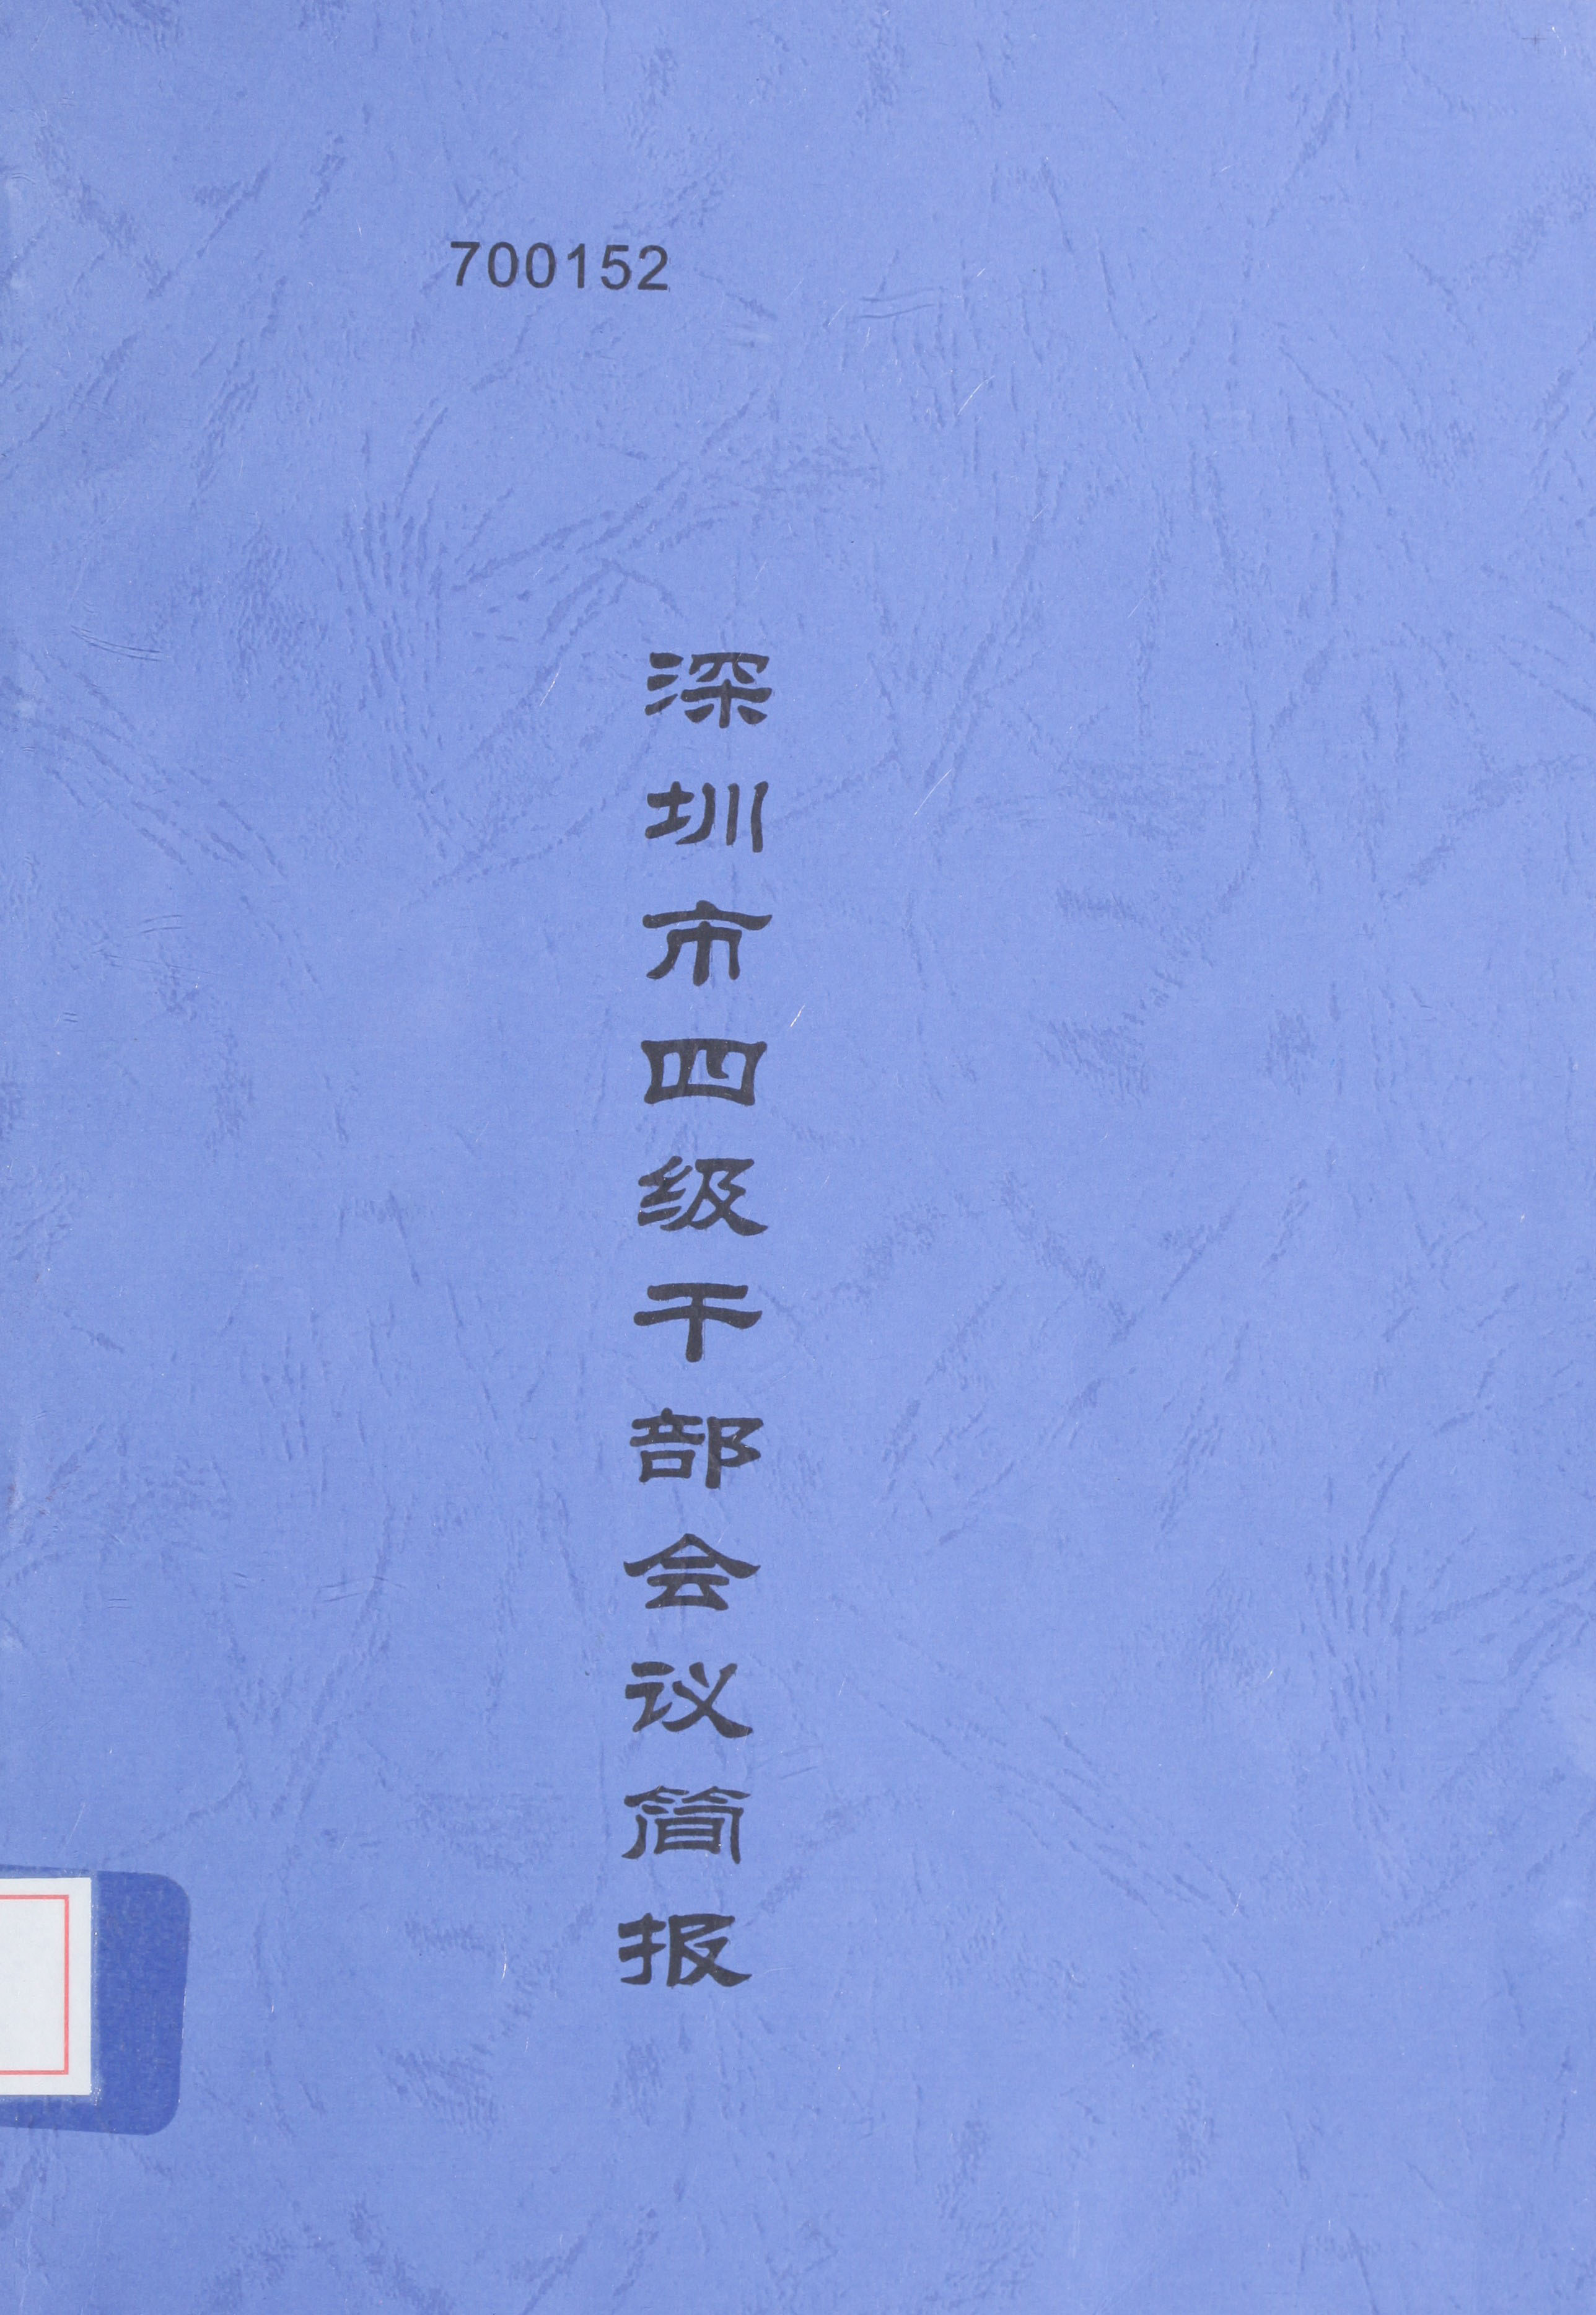 700152
深圳市四级干部会议简报